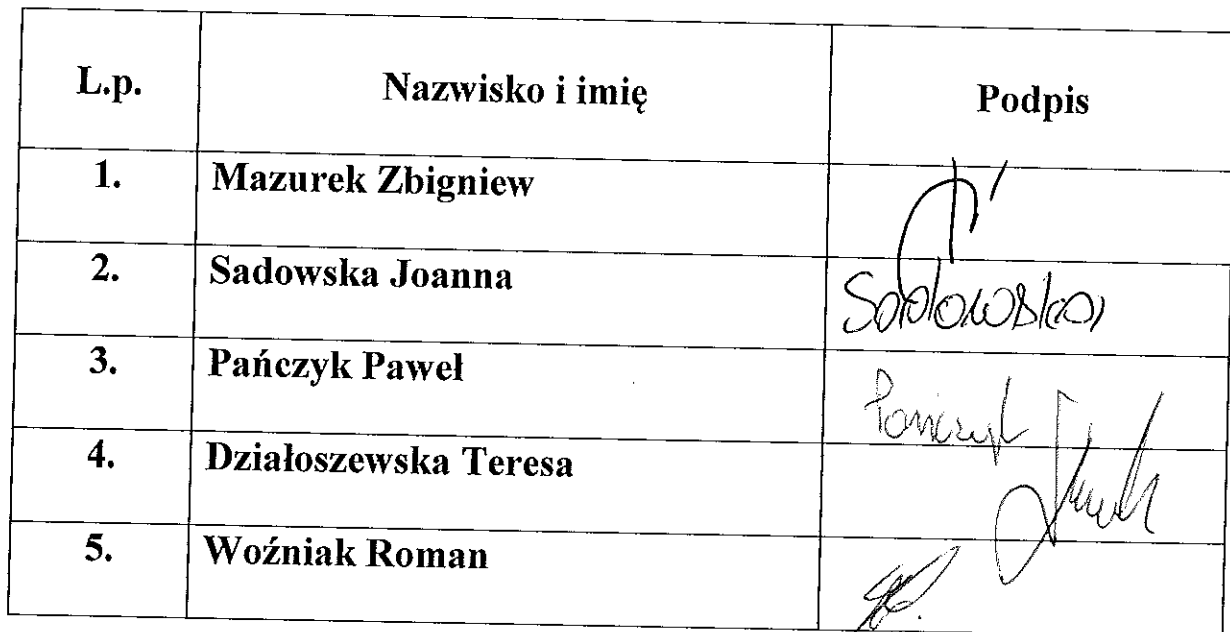 L.p. Nazwisko i imię Podpis
1. Mazurek Zbigniew
2. Sadowska Joanna Sadowska
3. Pańczyk Paweł Pańczyk
4. Działoszewska Teresa
5. Woźniak Roman